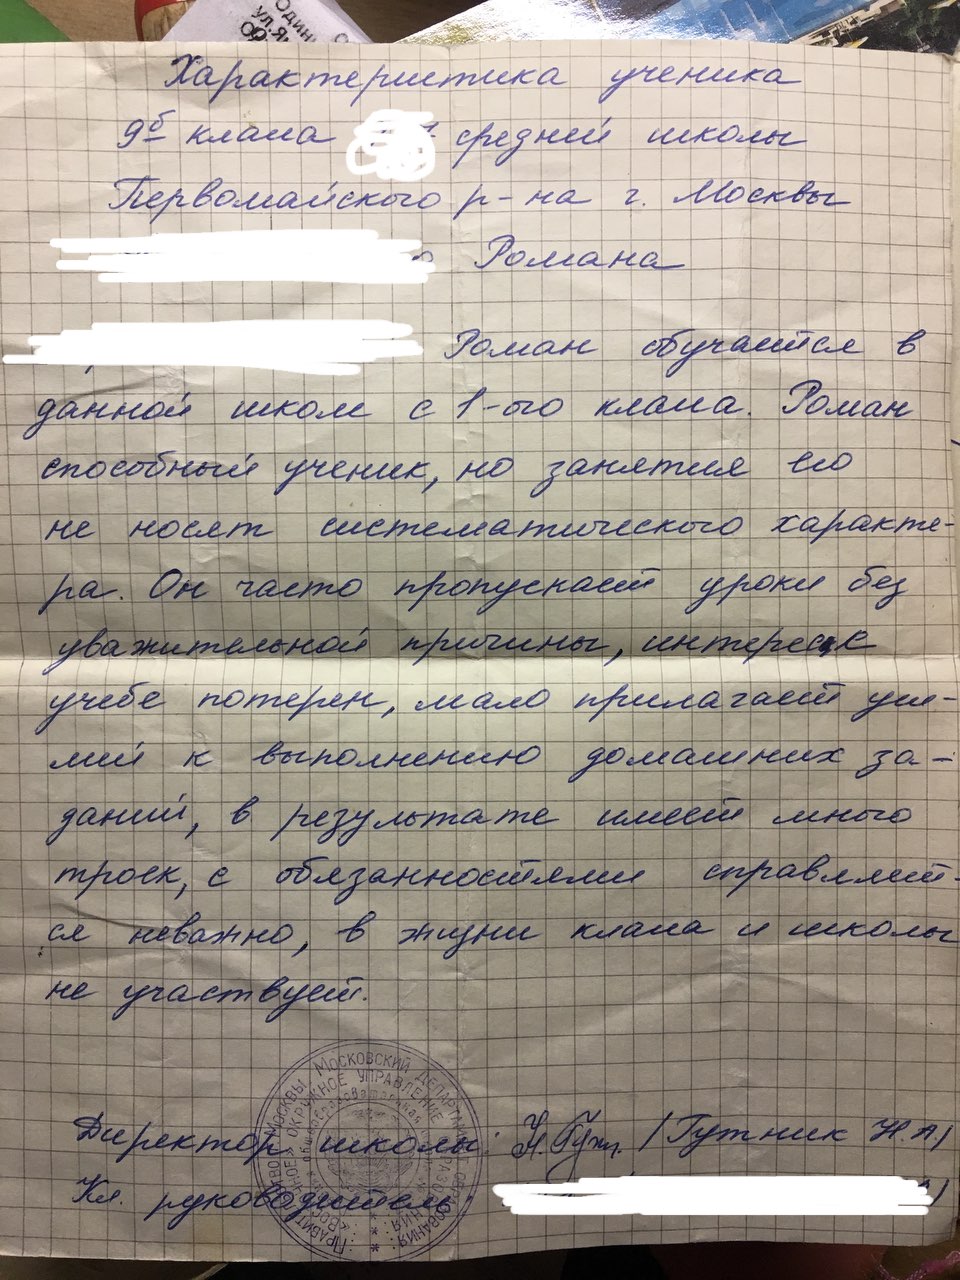 Один
ул.Я
Характеристика ученика
9б класса средней школы
Первомайского р-на г. Москвы
Романа
Роман обучается в
данной школе с 1-ого класса. Роман
способный ученик, но занятия его
не носят систематического характе-
ра. Он часто пропускает уроки без
уважительной причины, интерес к
учебе потерян, мало прилагает уси-
лий к выполнению домашних за-
даний, в результате имеет много
троек, с обязанностями справляет-
ся неважно, в жизни класса и школы
не участвует.
Директор школы: Н.Гутн. /Гутник Н.А./
Кл. руководитель:
Правительство Москвы Московский Департамент образования
Восточное окружное управление